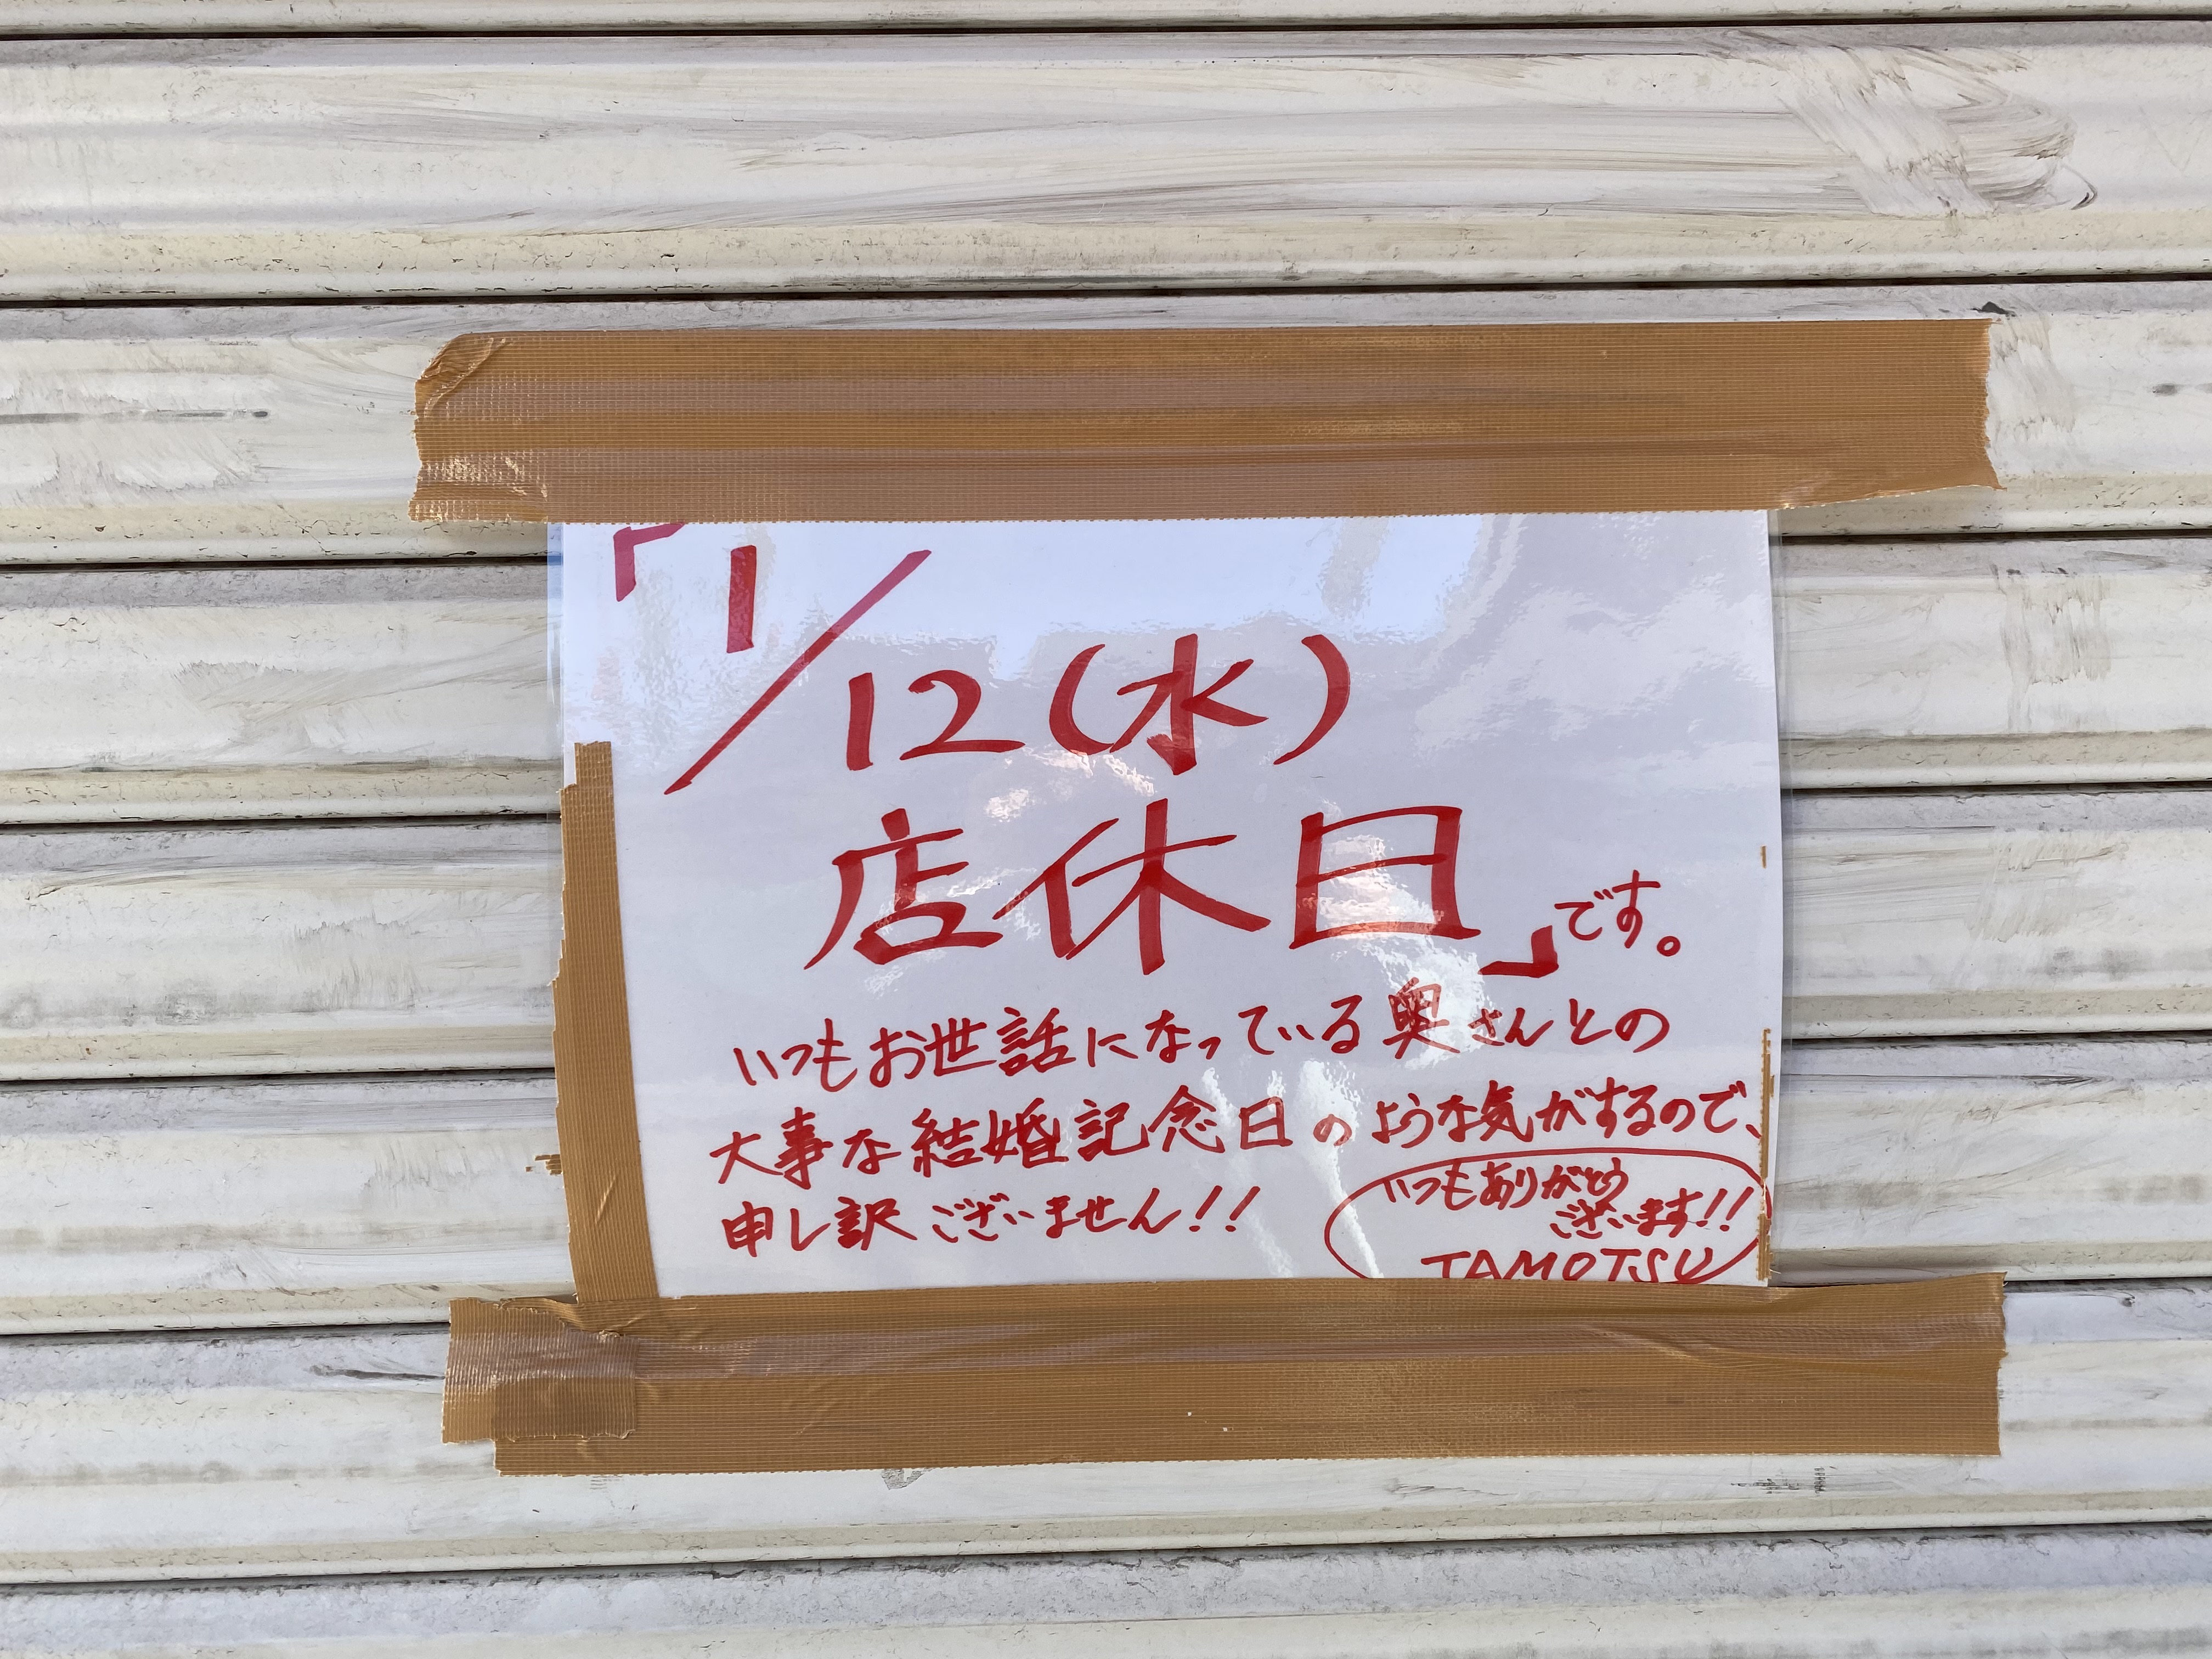 「1/12(水)
店休日」です。
いつもお世話になっている奥さんとの
大事な結婚記念日のような気がするので、
申し訳ございません!!
いつもありがとう
ございます!!
TAMOTSU